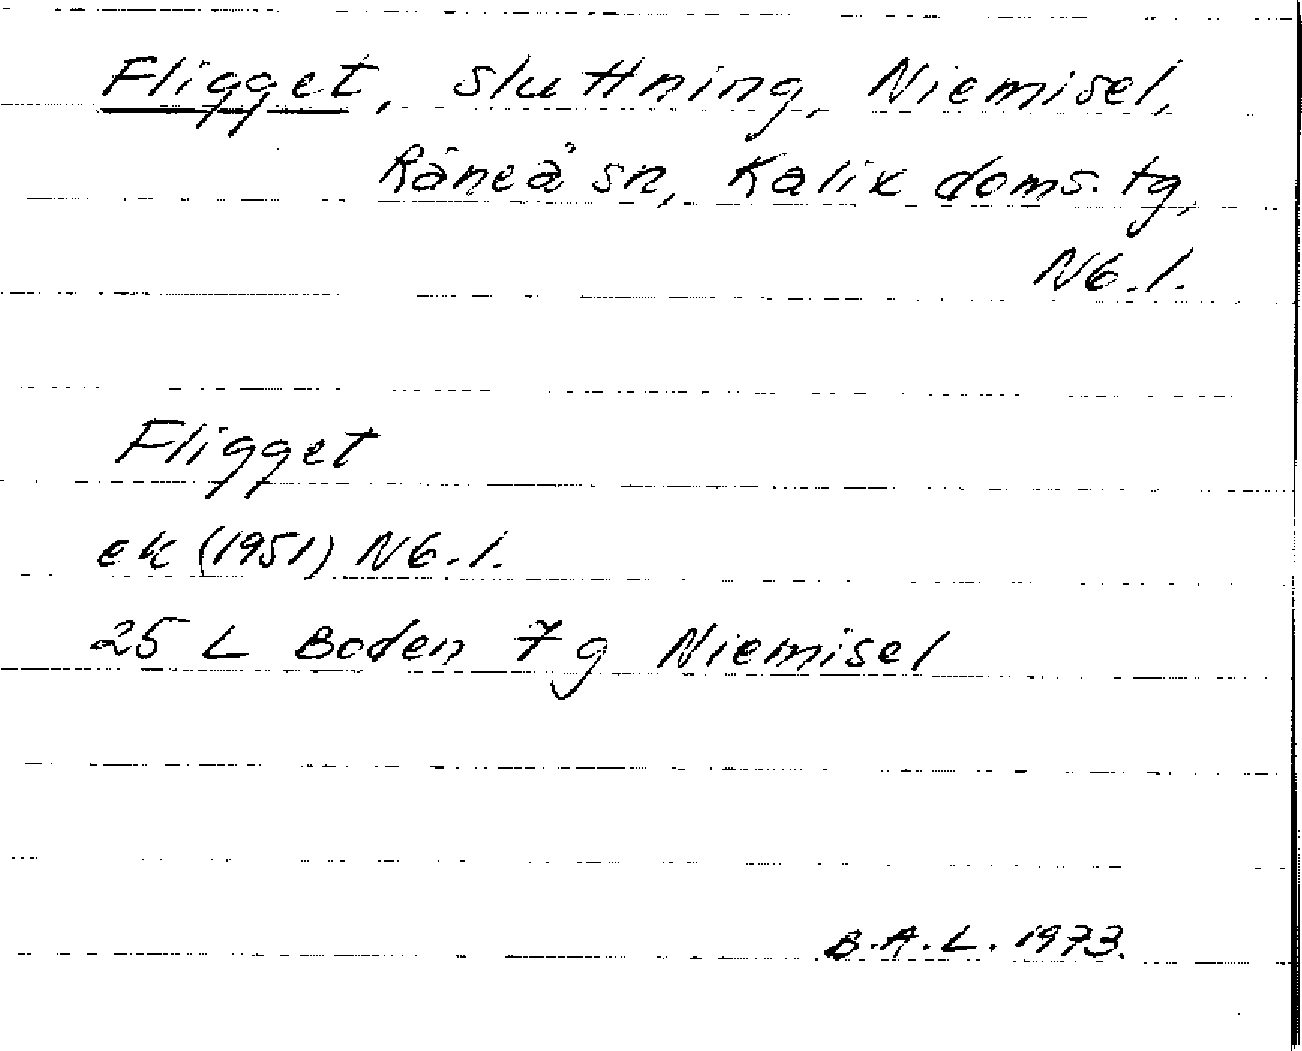 Fligget, sluttning, Niemisel,
Råneå sn, Kalix doms. tg,
Nb.l.
Fligget
ek (1951) Nb.l.
25 L Boden 7g Niemisel
B.A.L. 1973.